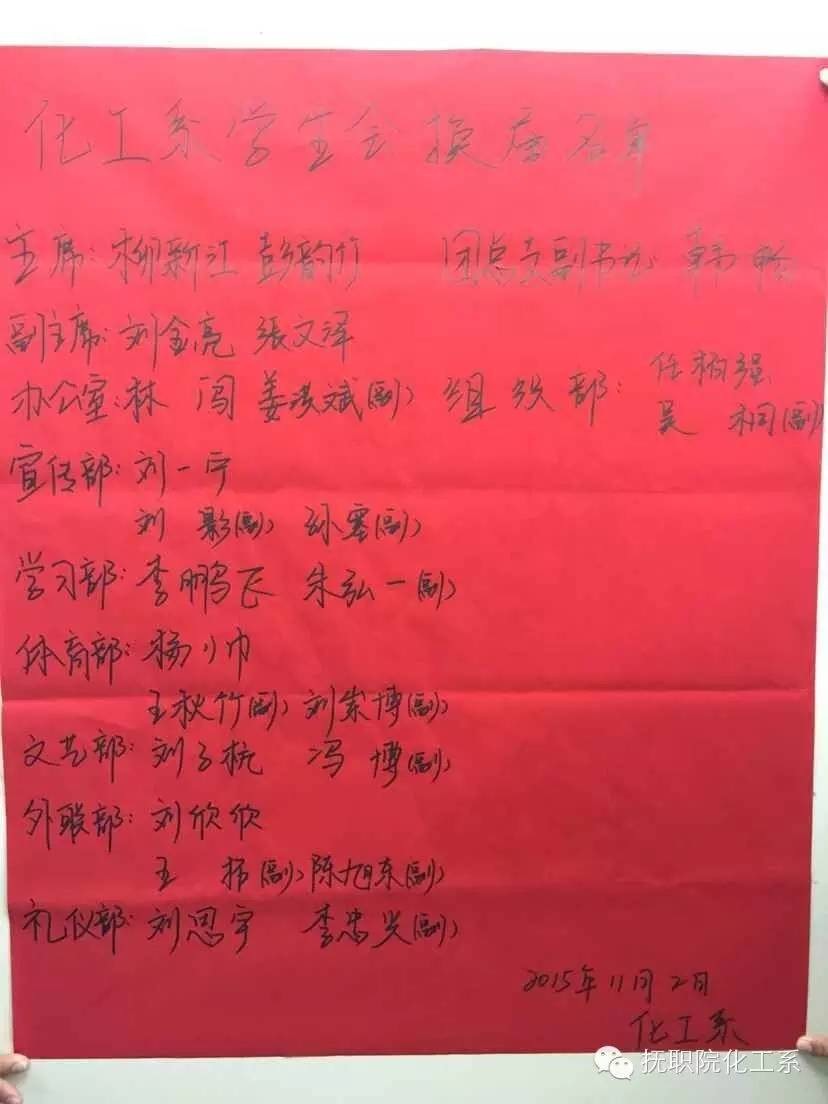 化工系学生会换届名单
主席:柳新江 彭韵竹 团总支副书记 韩畅
副主席:刘金亮 张文泽
办公室:林闯 姜洪斌(副) 组织部:任柄强
吴桐(副)
宣传部:刘一宁
刘影(副) 孙蹇(副)
学习部:李鹏飞 朱弘一(副)
体育部:杨小帅
王秋竹(副) 刘崇博(副)
文艺部:刘子杭 冯博(副)
外联部:刘欣欣
王扬(副) 陈旭东(副)
礼仪部:刘思宇 李忠兴(副)
2015年11月2日
化工系
抚职院化工系